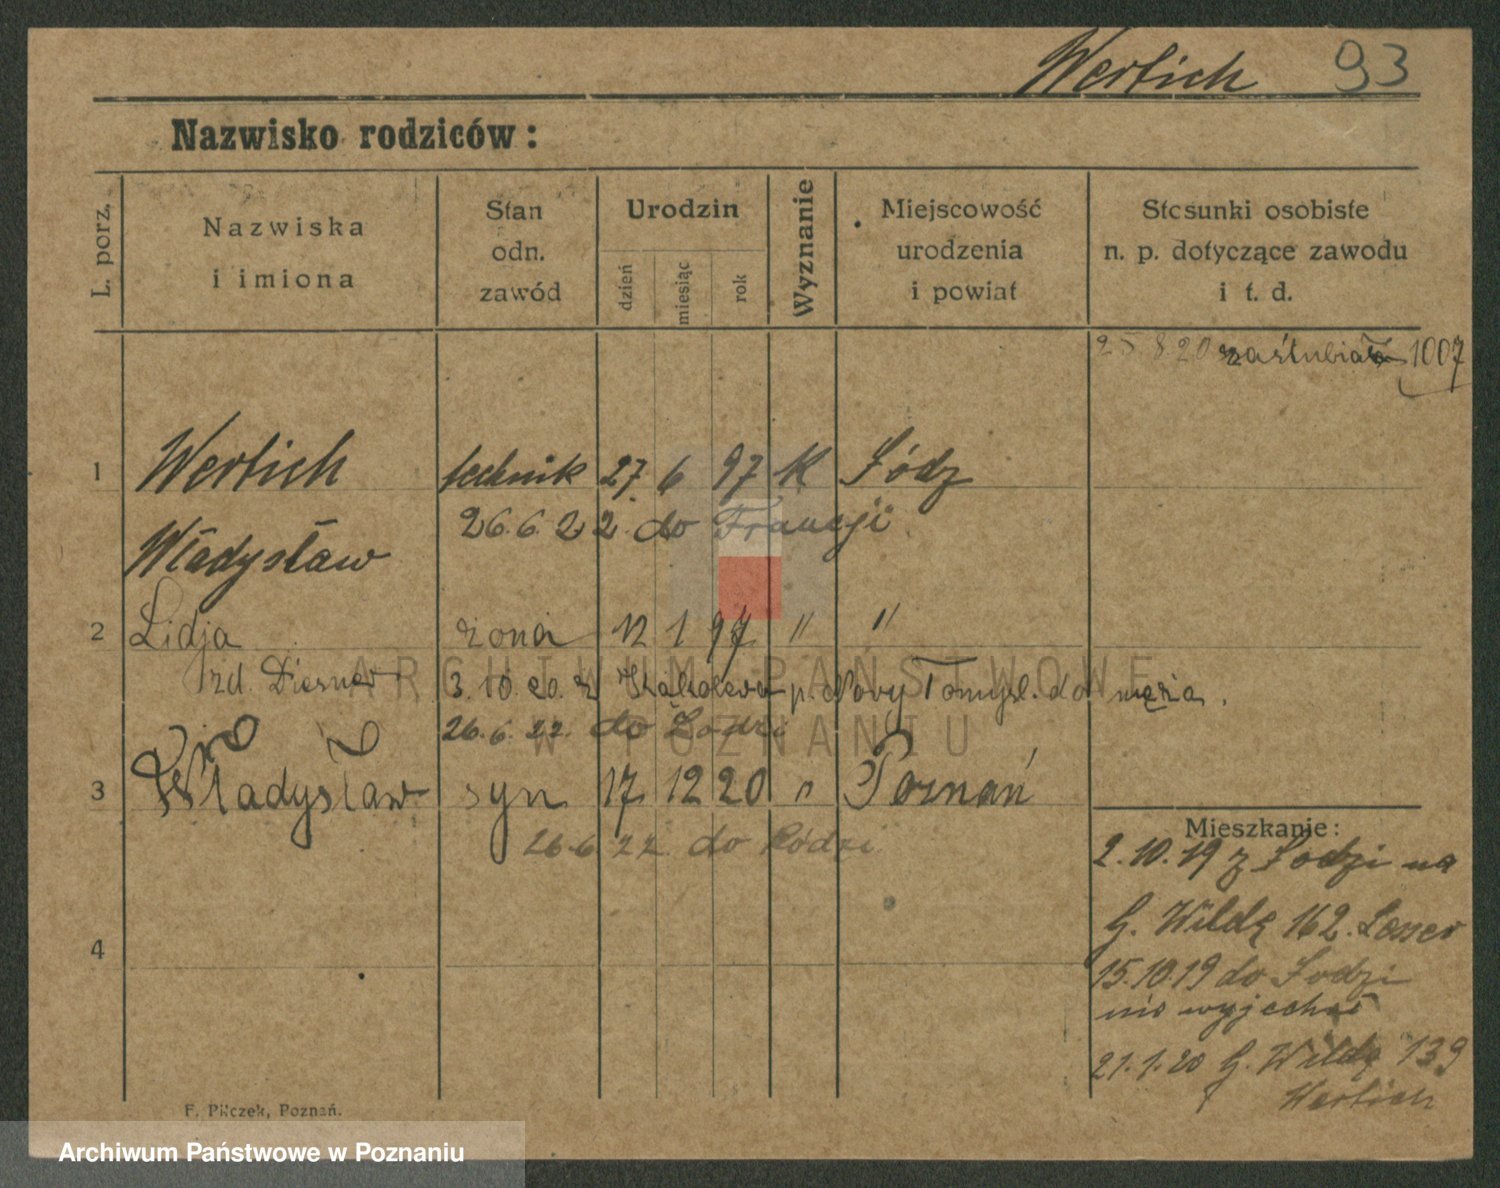 Wertich 93
Nazwisko rodziców:
L. porz.
Nazwiska
i imiona
Stan
odn.
zawód
Urodzin
dzień
miesiąc
rok
Wyznanie
Miejscowość
urodzenia
i powiat
Stosunki osobiste
n. p. dotyczące zawodu
i t. d.
25 8 20 zaślubiał 1007
1 Wertich technik 27. 6 97 K Łódz
26.6.22. do Francji
Władysław
2 Lidja żona 12 1 97 " "
zd. 3.10.20. z p. Nowy Tomysl. do męża.
26.6.22. do Łodzi
3 Władysław syn 17. 12 20 " Poznań
26.6.22. do Łódzi
Mieszkanie:
2.10.19 z Łodzi na
G. Wildę 162. Lesser
15.10.19 do Łodzi
nie wyjechał
21.1.20 G. Wildę 139
Wertich
4
F. Pilczek, Poznań.
ARCHIWUM PAŃSTWOWE
W POZNANIU
Archiwum Państwowe w Poznaniu